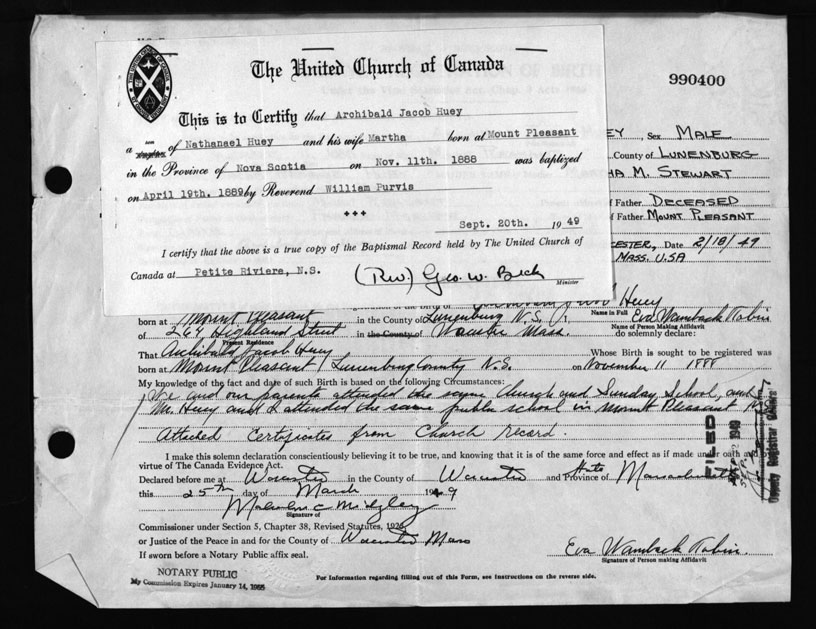 The United Church of Canada
990400
This is to Certify that Archibald Jacob Huey
a son of Nathanael Huey and his wife Martha born at Mount Pleasant
in the Province of Nova Scotia on Nov. 11th. 1888 was baptized
on April 19th. 1889 by Reverend William Purvis
+++
Sept. 20th. 1949
I certify that the above is a true copy of the Baptismal Record held by The United Church of
Canada at Petite Riviere, N.S. (Rev) Geo. W. Beck
Minister
EY, Sex MALE
County of LUNENBURG
HA M. STEWART
f Father DECEASED
f Father MOUNT PLEASANT
CESTER, Date 2/18/49
MASS. U.S.A
Huey
Name in Full
born at Mount Pleasant in the County of Lunenburg N.S. Eva Wamback Tobin
Name of Person Making Affidavit
of 264 Highland Street in the County of Worcester Mass. do solemnly declare:
Present Residence
That Archibald Jacob Huey Whose Birth is sought to be registered was
born at Mount Pleasant, Lunenburg County N.S. on November 11 1888
My knowledge of the fact and date of such Birth is based on the following Circumstances:
We and our parents attended the same Church and Sunday School, and
Mr. Huey and I attended the same public school in Mount Pleasant N.S.
Attached Certificates from Church record.
I make this solemn declaration conscientiously believing it to be true, and knowing that it is of the same force and effect as if made under oath and by
virtue of The Canada Evidence Act.
Declared before me at Worcester in the County of Worcester and State Province of Massachusetts
this 25th day of March 1949
Malcolm C Midgley
Signature of
Commissioner under Section 5, Chapter 38, Revised Statutes, 1923
or Justice of the Peace in and for the County of Worcester Mass
If sworn before a Notary Public affix seal.
Eva Wamback Tobin
Signature of Person making Affidavit
NOTARY PUBLIC
My Commission Expires January 14, 1955
For Information regarding filling out of this Form, see Instructions on the reverse side.
FILED
1949
Deputy Registrar General